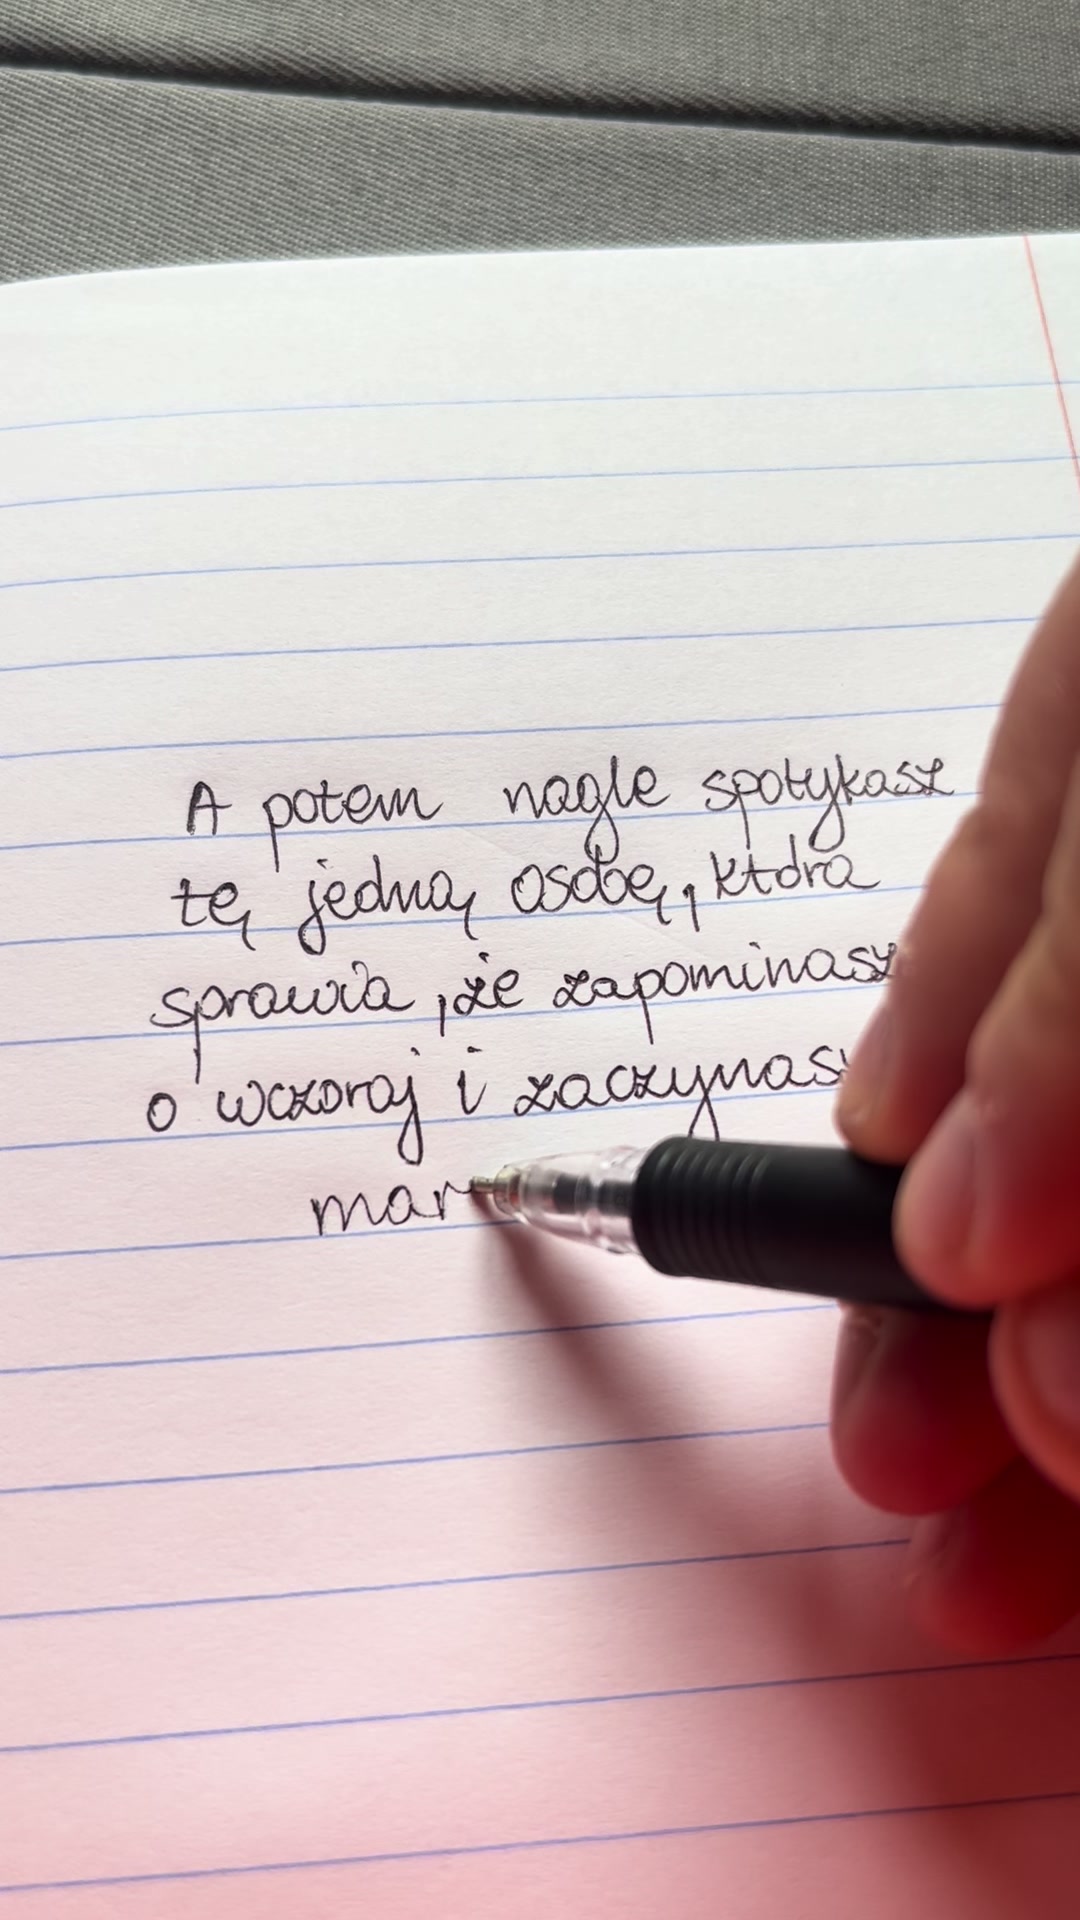 A potem nagle spotykasz
tę jedną osobę, która
sprawia, że zapominasz
o wczoraj i zaczynasz
mar